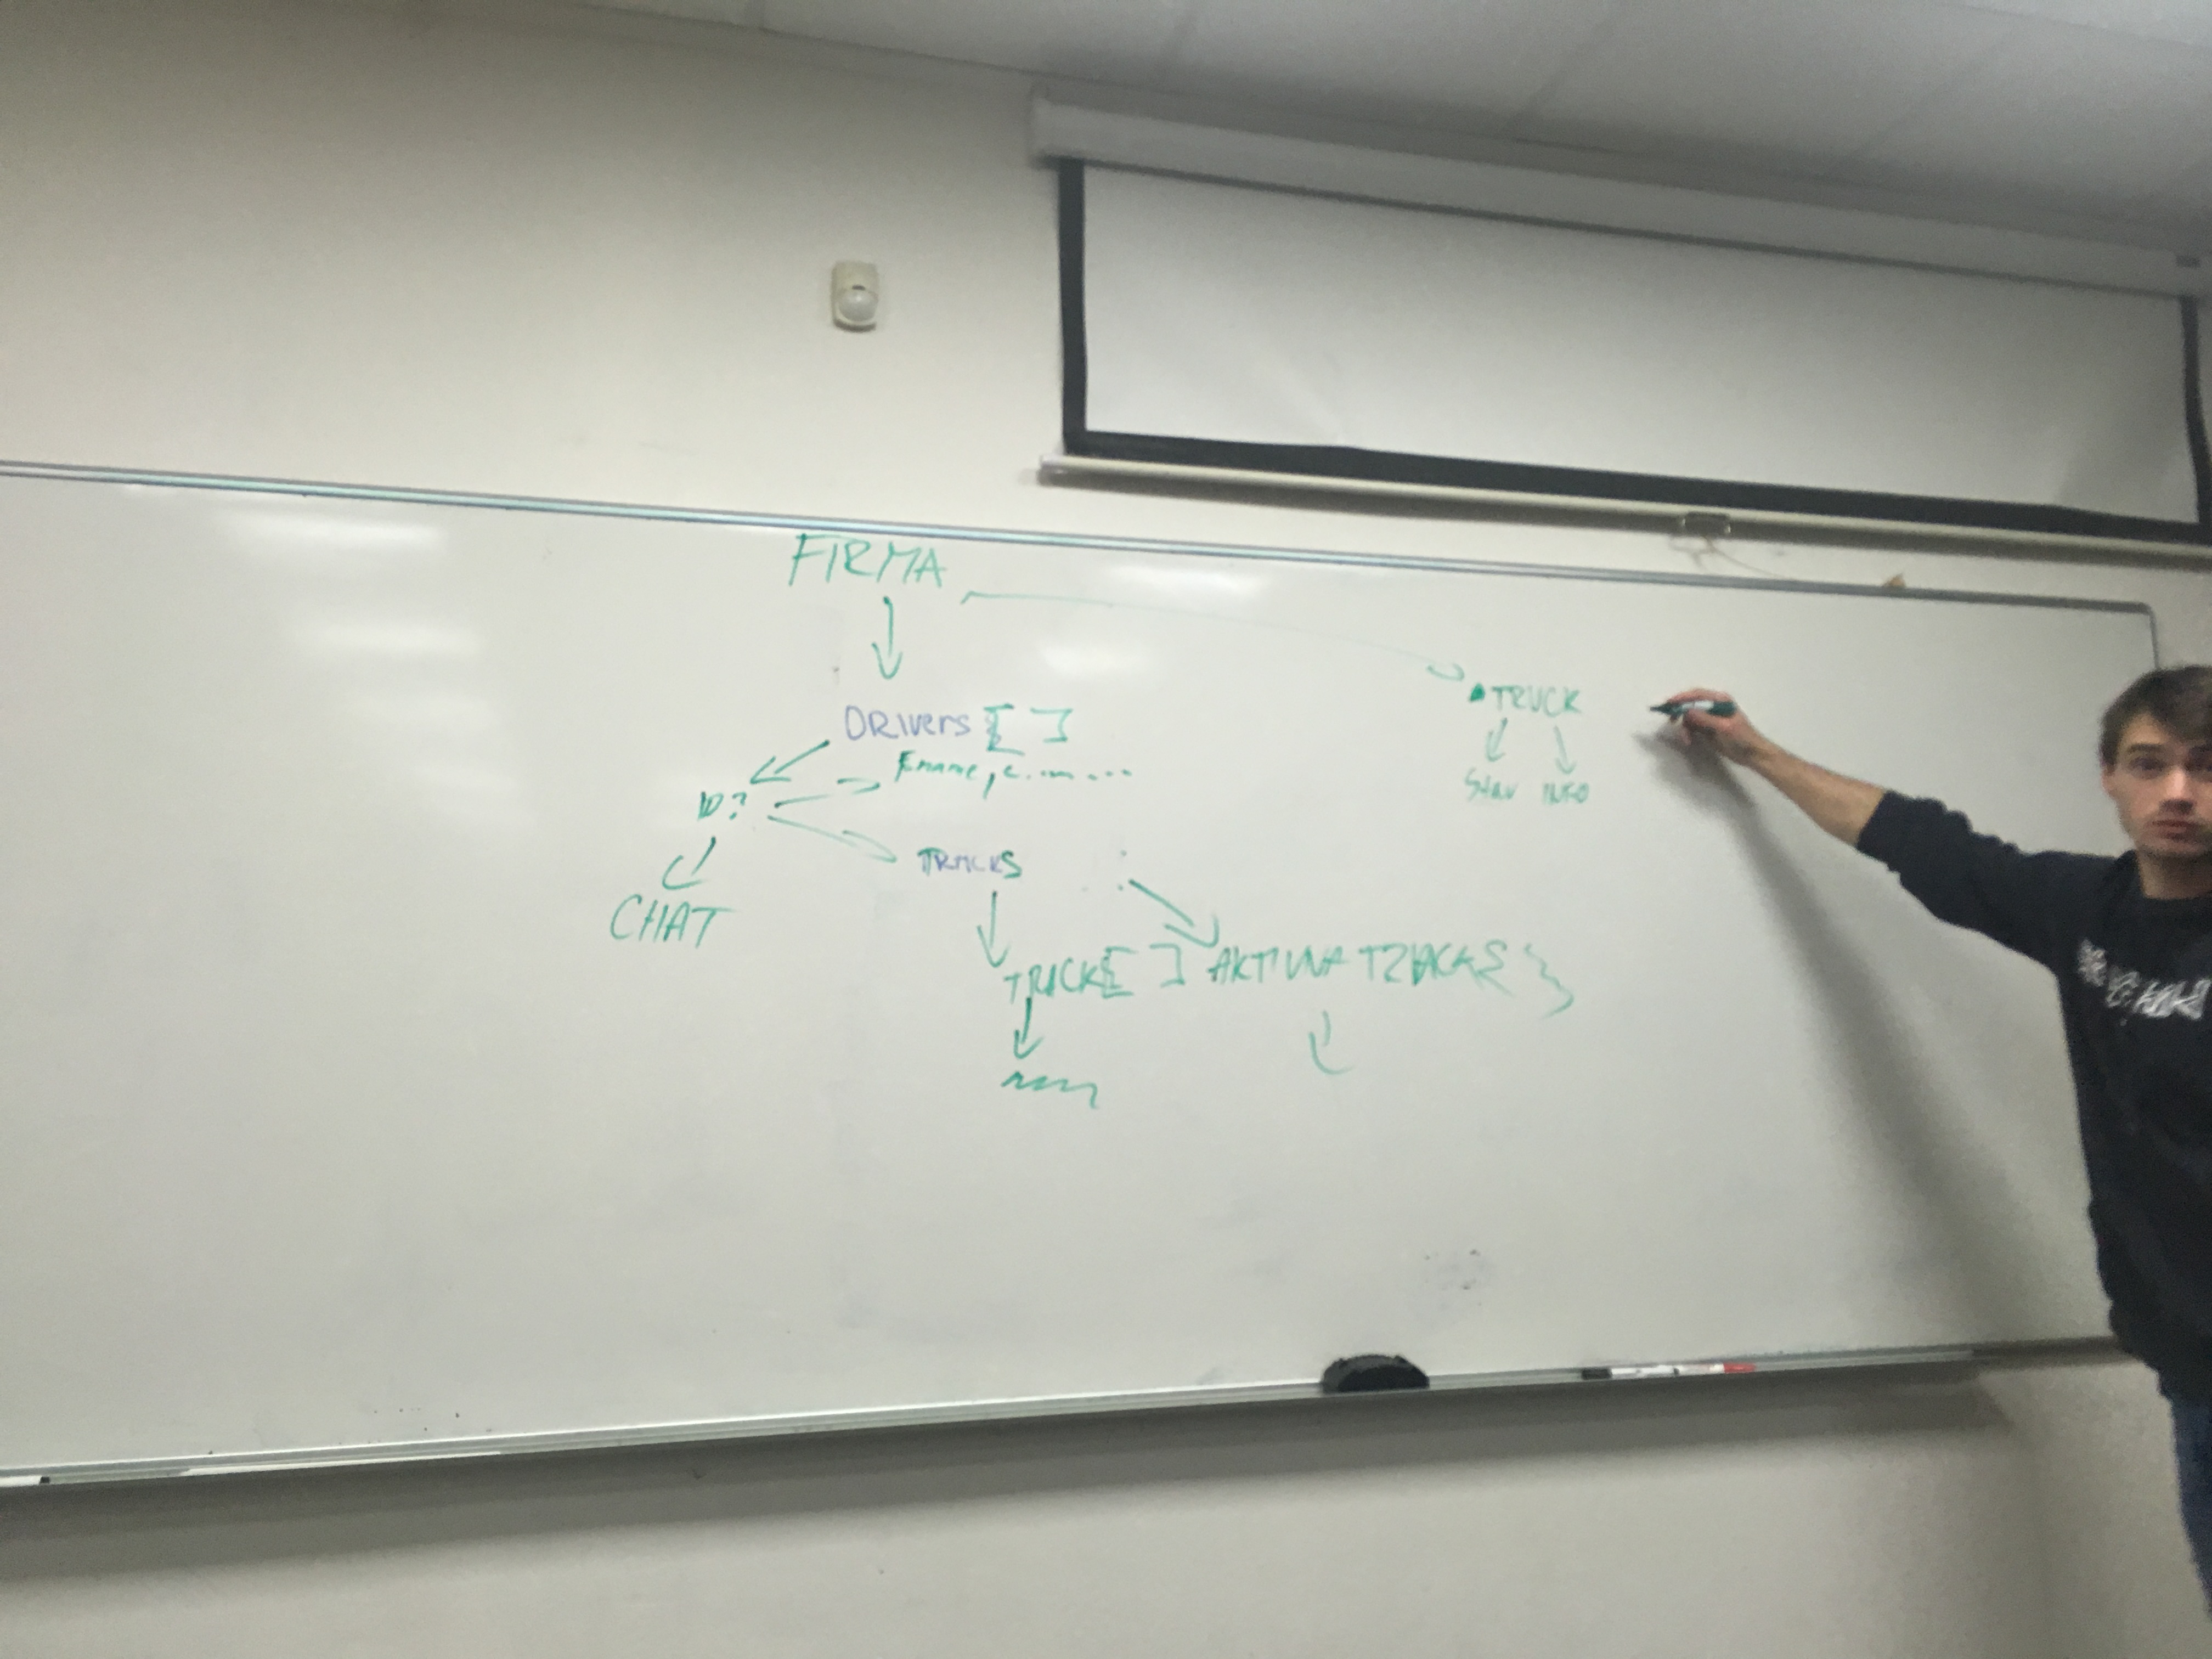 FIRMA
DRIVERS [ ]
Fname,
ID?
TRACKS
CHAT
TRACK[ ] AKTIVNA TRACKA { }
TRUCK
Stav INFO